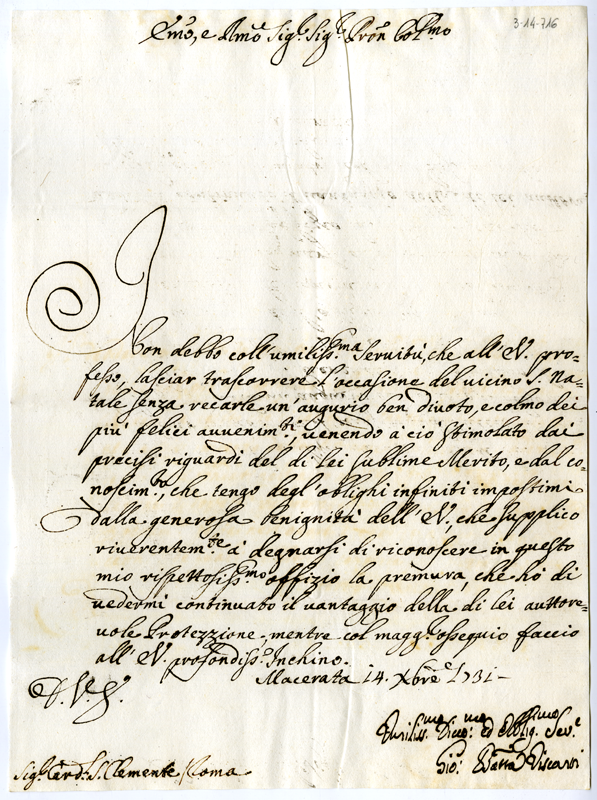 3-14-716
Em̃o, e Rm̃o Sig.r Sig.r Pron Col.mo
Non debbo coll'umiliss.ma Servitù, che all'V. pro=
fesso, lasciar trascorrere l'occasione del vicino S. Na=
tale senza recarle un'augurio ben divoto, e colmo dei
più felici avvenim.ti, venendo a' ciò stimolato dai
precisi riguardi del di Lei sublime Merito, e dal co=
noscim.to, che tengo degl'oblighi infiniti impostimi
dalla generosa benignità dell'V. che supplico
riverentem.te a' degnarsi di riconoscere in questo
mio rispettosiss.mo offizio la premura, che hò di
vedermi continuato il vantaggio della di Lei autore=
vole Protezzione, mentre col magg.r ossequio faccio
all'V. profondiss.o Inchino.
Macerata 14. Xbre 1731-
Umiliss.mo Divo.mo ed Obblig.mo Ser.e
Gio: Batta Viscardi
Sig.r Card. S. Clemente / Roma